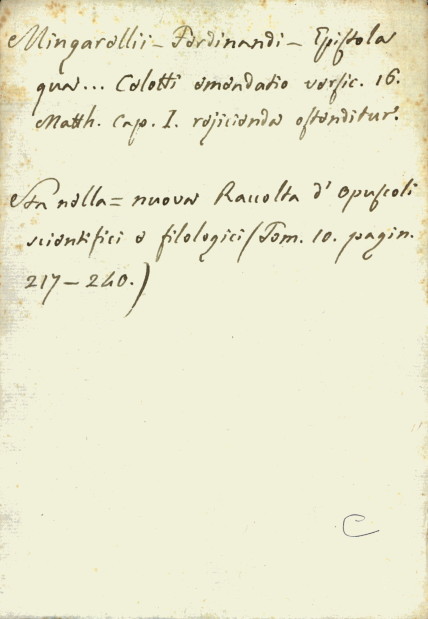 Mingarellii - Ferdinandi - Epistola
qua... Celotti emendatio versic. 16.
Matth. Cap. I. rejicienda ostenditur.
Sta nella = nuova Raccolta d' Opuscoli
scientifici e filologici (Tom. 10. pagin.
217 - 240.)
C